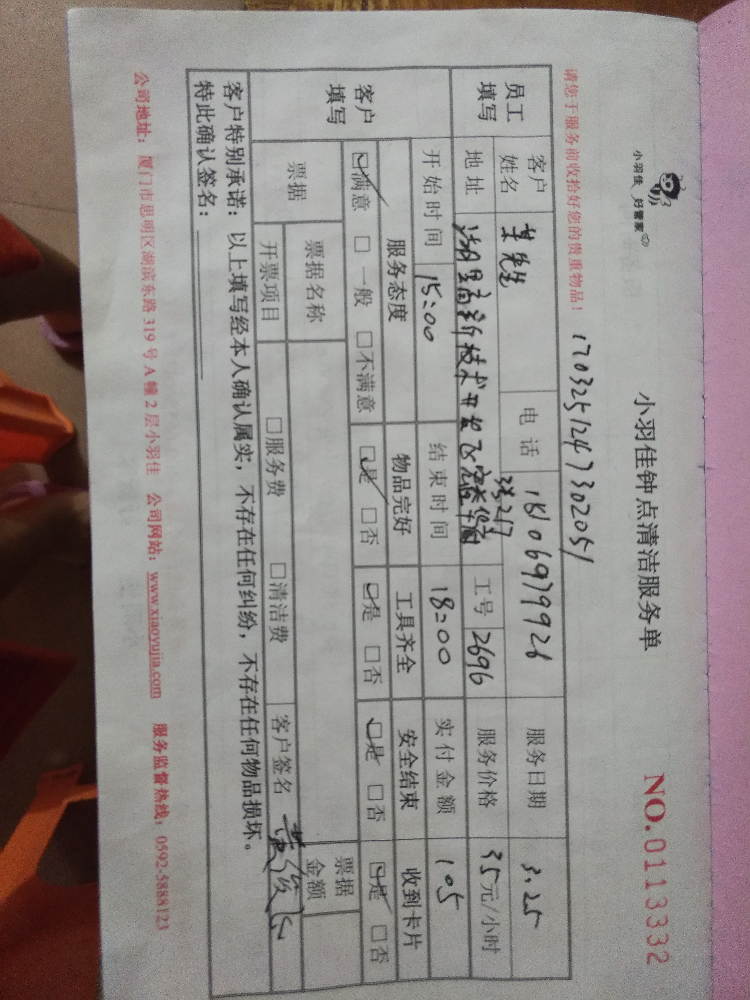 小羽佳 好管家
小羽佳钟点清洁服务单
NO.0113332
请您于服务前收拾好您的贵重物品！
员工填写
客户姓名
先生
电话
服务日期 3.25
地址
工号 2696
服务价格 35元/小时
客户填写
开始时间 15:00
结束时间 18:00
实付金额 105
服务态度 物品完好 工具齐全 安全结束 收到卡片
☑满意 □一般 □不满意 ☑是 □否 ☑是 □否 ☑是 □否 ☑是 □否
票据
票据名称
票据金额
开票项目 □服务费 □清洁费
客户签名
客户特别承诺：以上填写经本人确认属实，不存在任何纠纷，不存在任何物品损坏。
特此确认签名：
公司地址：厦门市思明区湖滨东路319号A幢2层小羽佳 公司网站：www.xiaoyujia.com 服务监督热线：0592-5888123